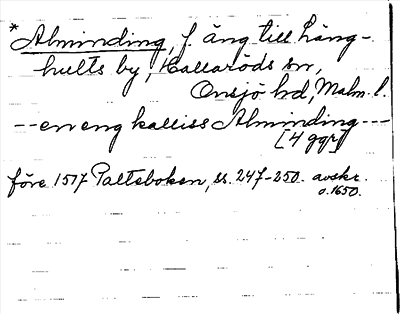 * Alminding, f. äng till Häng-
hults by, Hallaröds sn,
Onsjö hd, Malm. l.
-- en eng kalliss Alminding ---
[4 ggr]
före 1517 Paltsboken, ss. 247-250. avskr.
o. 1650.